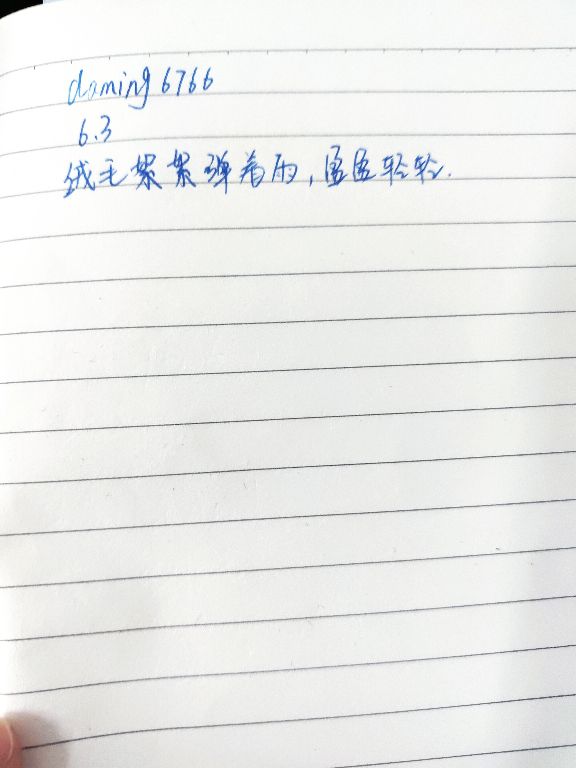 daming6766
6.3
绒毛絮絮弹着雨,匿匿轻轻.